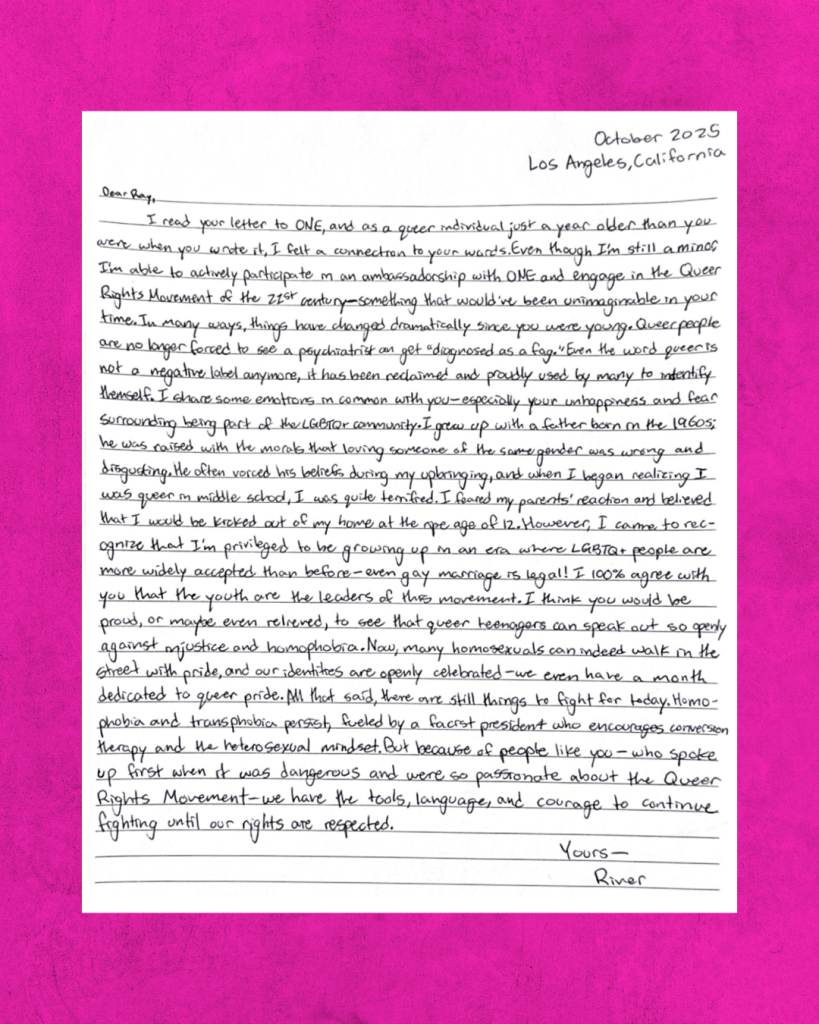 October 2025
Los Angeles, California
Dear Ray,
I read your letter to ONE, and as a queer individual just a year older than you
were when you wrote it, I felt a connection to your words. Even though I'm still a minor
I'm able to actively participate in an ambassadorship with ONE and engage in the Queer
Rights Movement of the 21st century—something that would've been unimaginable in your
time. In many ways, things have changed dramatically since you were young. Queer people
are no longer forced to see a psychiatrist an get "diagnosed as a fag." Even the word queer is
not a negative label anymore, it has been reclaimed and proudly used by many to indentify
themself. I share some emotions in common with you—especially your unhappiness and fear
surrounding being part of the LGBTQ+ community. I grew up with a father born in the 1960s;
he was raised with the morals that loving someone of the same gender was wrong and
disgusting. He often voiced his beliefs during my upbringing, and when I began realizing I
was queer in middle school, I was quite terrified. I feared my parents' reaction and believed
that I would be kicked out of my home at the ripe age of 12. However, I came to rec-
ognize that I'm privileged to be growing up in an era where LGBTQ+ people are
more widely accepted than before—even gay marriage is legal! I 100% agree with
you that the youth are the leaders of this movement. I think you would be
proud, or maybe even relieved, to see that queer teenagers can speak out so openly
against injustice and homophobia. Now, many homosexuals can indeed walk in the
street with pride, and our identities are openly celebrated—we even have a month
dedicated to queer pride. All that said, there are still things to fight for today. Homo-
phobia and transphobia persist, fueled by a facist president who encourages conversion
therapy and the heterosexual mindset. But because of people like you—who spoke
up first when it was dangerous and were so passionate about the Queer
Rights Movement—we have the tools, language, and courage to continue
fighting until our rights are respected.
Yours—
River